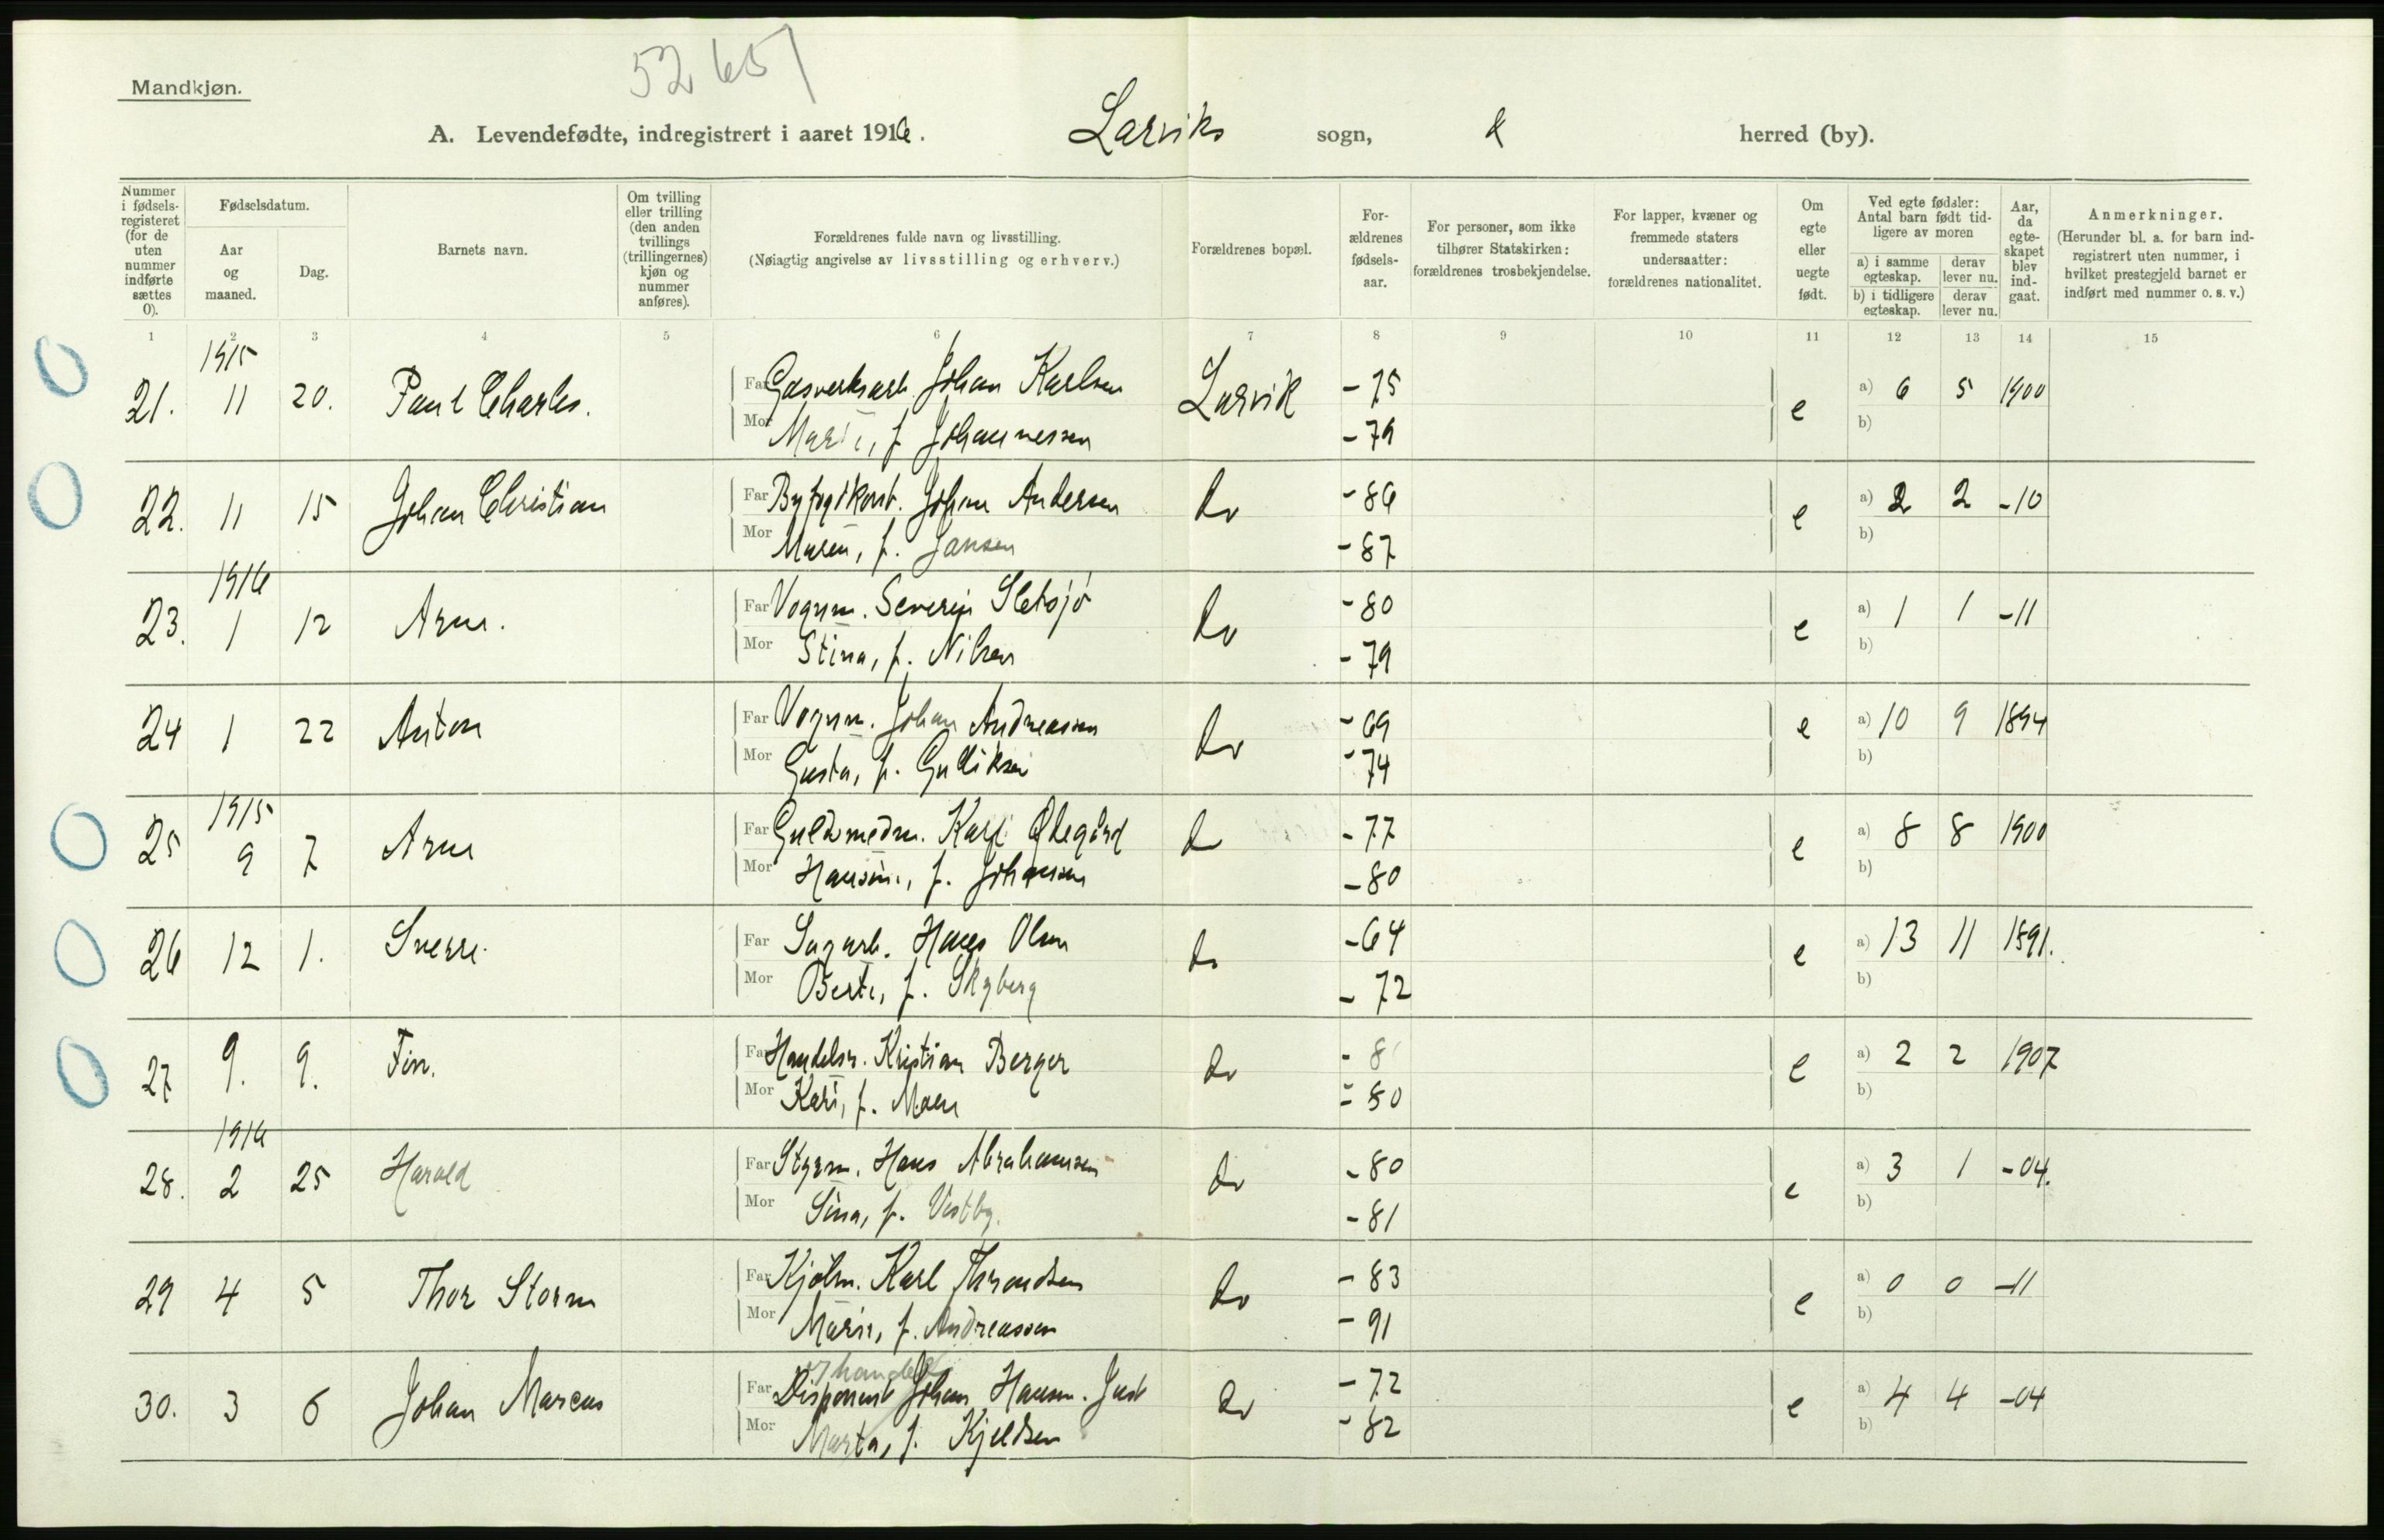 52651
Mandkjøn.
A. Levendefødte, indregistrert i aaret 1916. Larviks sogn, herred (by).
Nummer i fødsels-registeret (for de uten nummer indførte sættes 0).
Fødselsdatum.
Aar og maaned.
Dag.
Barnets navn.
Om tvilling eller trilling (den anden tvillings (trillingernes) kjøn og nummer anføres).
Forældrenes fulde navn og livsstilling.
(Nøiagtig angivelse av livsstilling og erhverv.)
Forældrenes bopæl.
For-ældrenes fødsels-aar.
For personer, som ikke tilhører Statskirken: forældrenes trosbekjendelse.
For lapper, kvæner og fremmede staters undersaatter: forældrenes nationalitet.
Om egte eller uegte født.
Ved egte fødsler: Antal barn født tid-ligere av moren
a) i samme egteskap. derav lever nu.
b) i tidligere egteskap. derav lever nu.
Aar, da egte-skapet blev ind-gaat.
Anmerkninger.
(Herunder bl. a. for barn ind-registrert uten nummer, i hvilket prestegjeld barnet er indført med nummer o. s. v.)
1 2 3 4 5 6 7 8 9 10 11 12 13 14 15
1915
21. 11 20. Paul Charles. Far Gasverksarb. Johan Karlsen Larvik -75 e a) 6 5 1900
Mor Marie, f. Johannessen -79 b)
22. 11 15 Johan Christian Far Johan Andersen do -86 e a) 2 2 -10
Mor Maren, f. Jansen -87 b)
1916
23. 1 12 Arne. Far Vognm. Severin Sletsjø do -80 e a) 1 1 -11
Mor Stina, f. Nilsen -79 b)
24 1 22 Anton Far Vognm. Johan Andreassen do -69 e a) 10 9 1894
Mor Gusta, f. Gulliksen -74 b)
1915
25 9 7 Arne Far Guldsmedm. Karl Ødegård do -77 e a) 8 8 1900
Mor Hansine, f. Johansen -80 b)
26 12 1. Sverre. Far Sagarb. Hans Olsen do -64 e a) 13 11 1891.
Mor Berte, f. Skyberg -72 b)
27 9. 9. Finn. Far Handelsr. Kristian Berger do -8 e a) 2 2 1907
Mor Kari, f. Moen -80 b)
1916
28. 2 25 Harald Far Styrm. Hans Abrahamsen do -80 e a) 3 1 -04.
Mor Sina, f. Vestby. -81 b)
29 4 5 Thor Storm Far Kjølm. Karl Throndsen do -83 e a) 0 0 -11
Mor Marie, f. Andreassen -91 b)
handel
30. 3 6 Johan Marcus Far Disponent Johan Hansen. Just do -72 e a) 4 4 -04
Mor Marta, f. Kjeldsen -82 b)